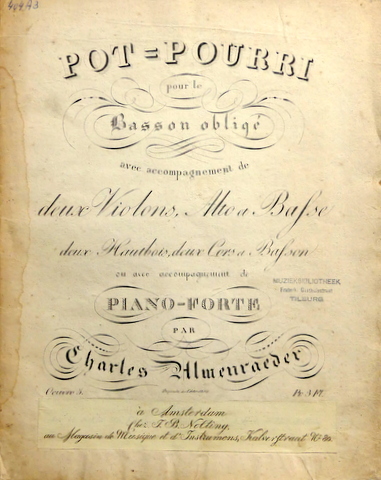 POT=POURRI
pour le
Basson obligé
avec accompagnement de
deux Violons, Alto à Basse
deux Hautbois, deux Cors à Basson
ou avec accompagnement de
PIANO-FORTE
PAR
Charles Almenraeder
MUZIEKBIBLIOTHEEK
TILBURG
Oeuvre 3.
à Amsterdam
Chez F. B. Nolting,
au Magasin de Musique et d'Instrumens, Kalverstraat